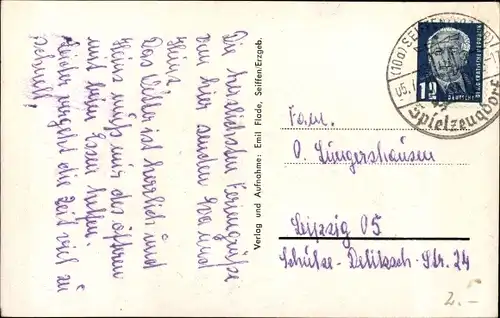 Die herzlichsten Feriengrüße
von hier senden Eva und
Heinz.
Das Wetter ist herrlich und
Heinz muß mir des öfteren
mit beim Essen helfen.
Leider vergeht die Zeit viel zu
schnell!
Verlag und Aufnahme: Emil Flade, Seiffen/Erzgeb.
(10a) SEIFFEN (ERZGEB)
05.
Spielzeugdorf
12
DEUTSCHE
DEMOKRATISCHE REPUBLIK
Fam.
O. Lüngershausen
Leipzig O5
Schulze-Delitzsch-Str. 24
2.-